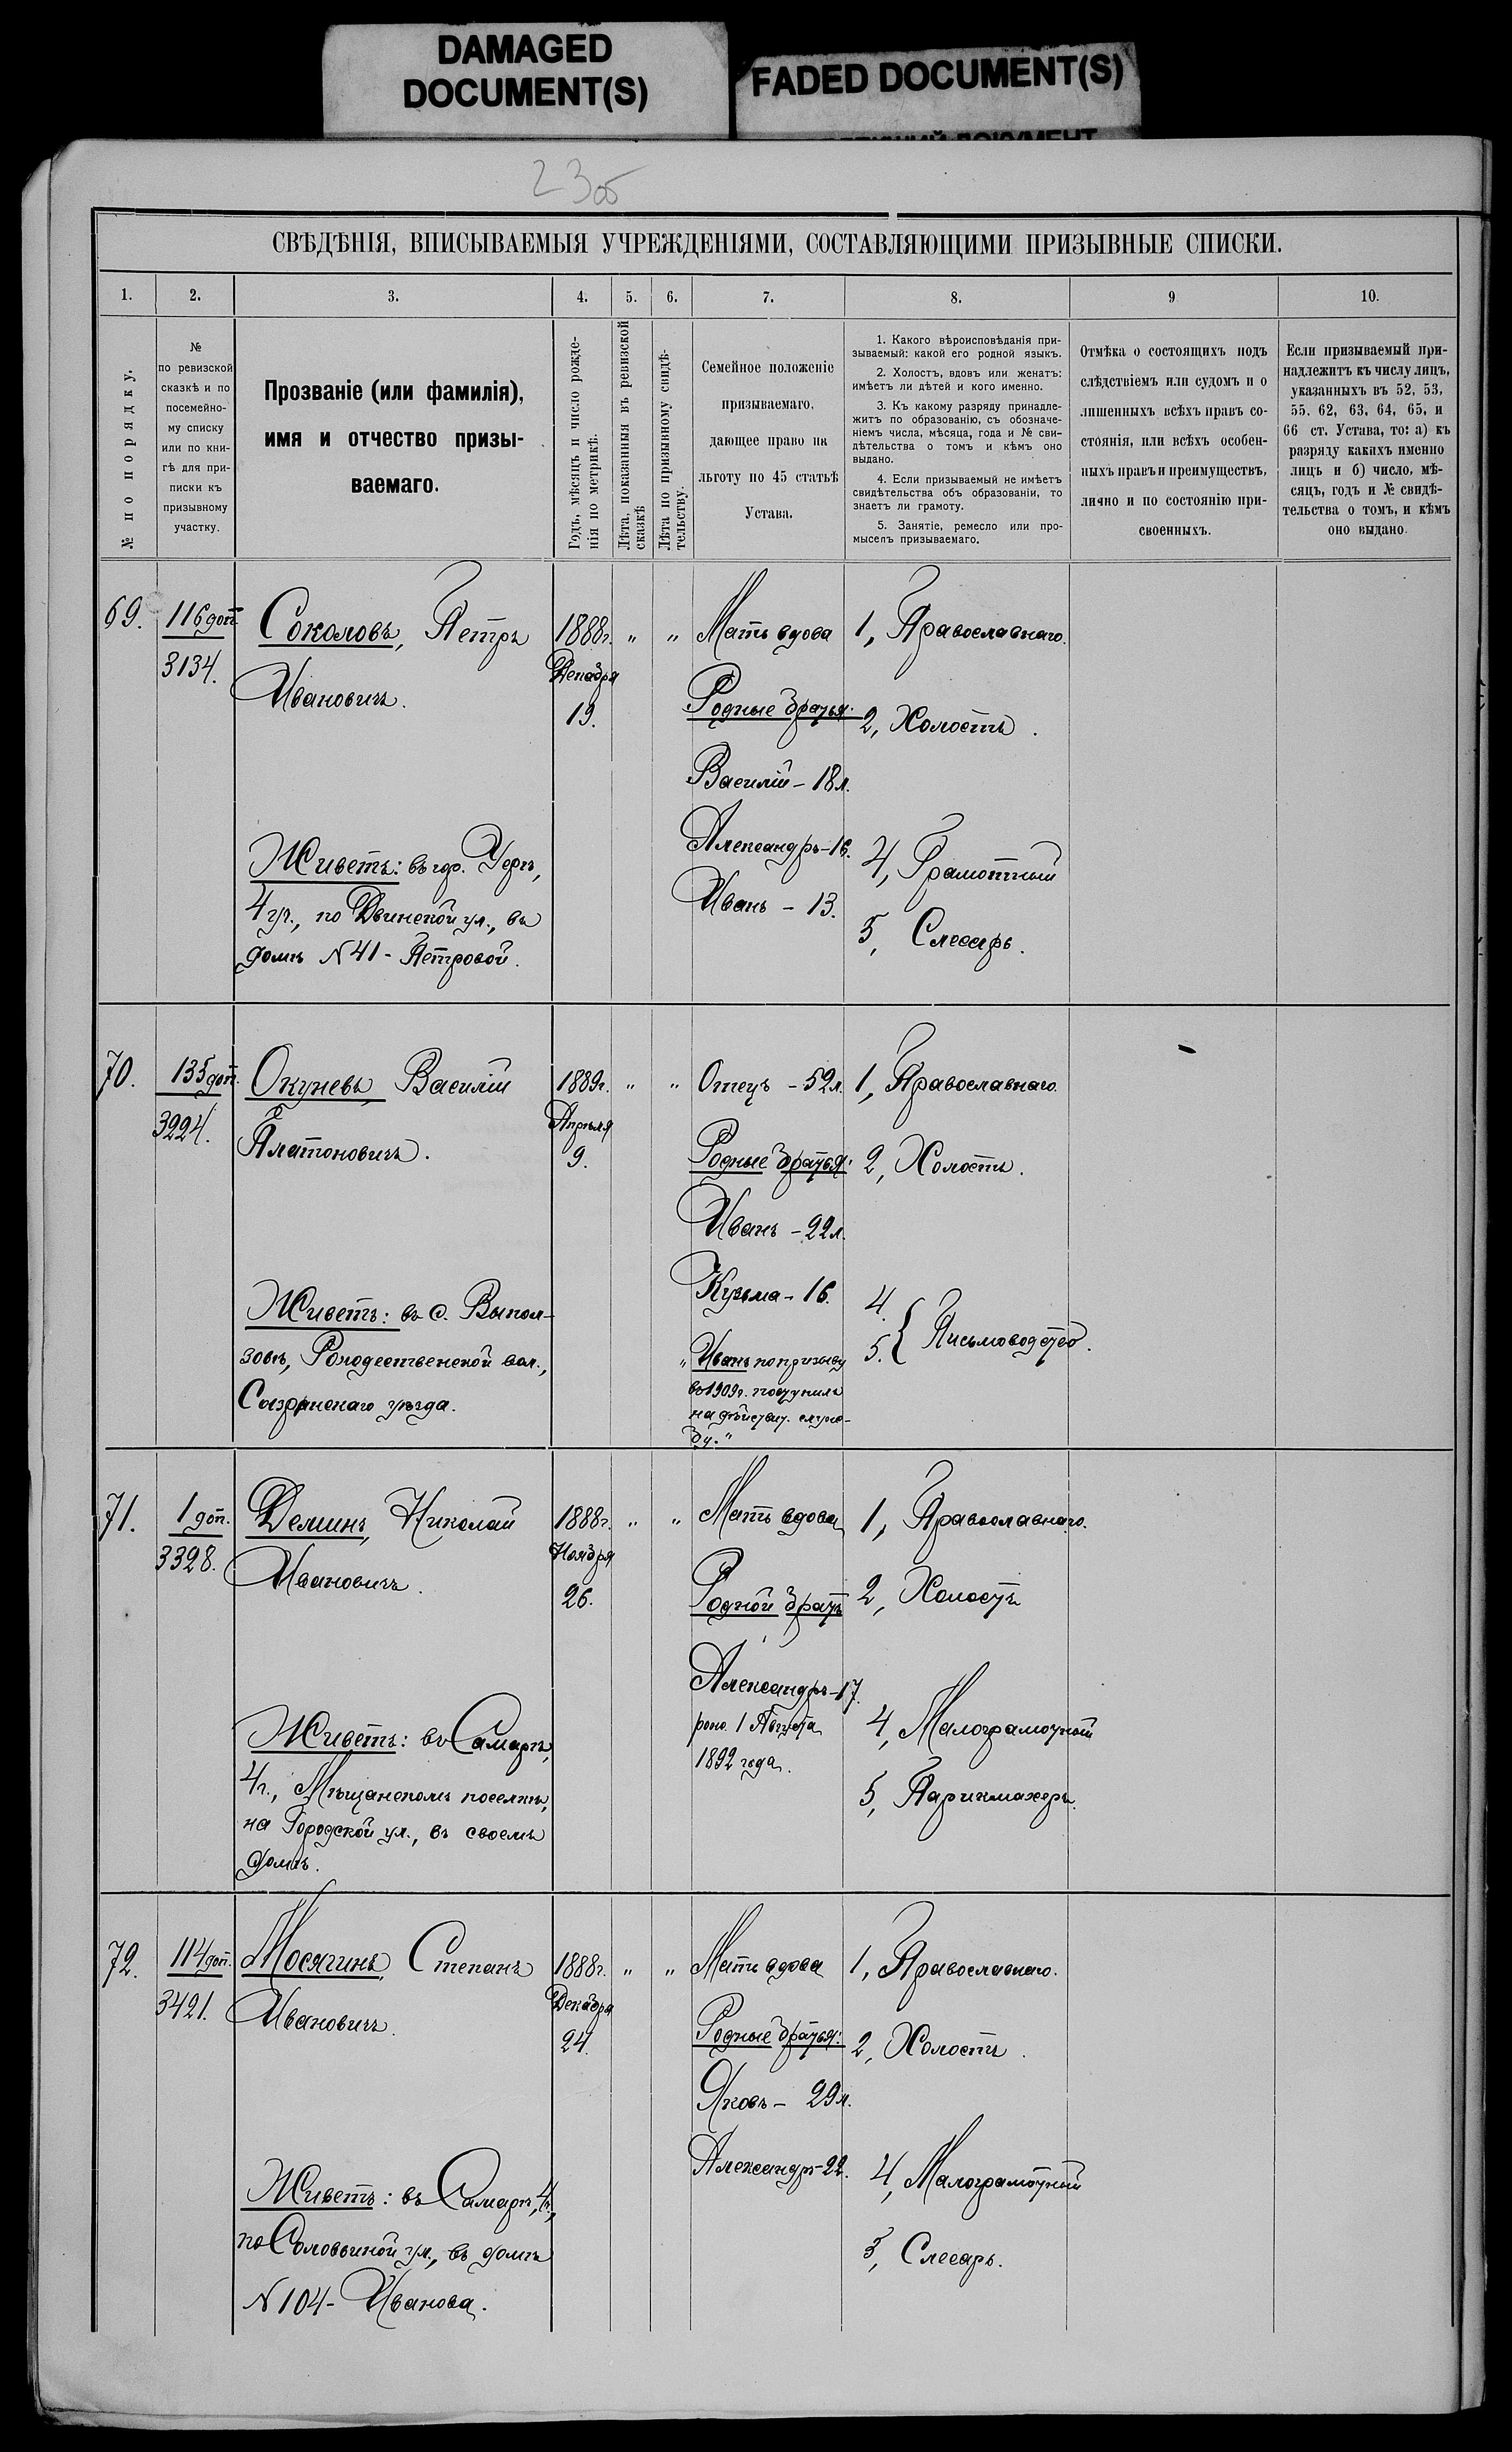 DAMAGED
DOCUMENT(S)
FADED DOCUMENT(S)
23об
СВѢДѢНІЯ, ВПИСЫВАЕМЫЯ УЧРЕЖДЕНІЯМИ, СОСТАВЛЯЮЩИМИ ПРИЗЫВНЫЕ СПИСКИ.
1. 2. 3. 4. 5. 6. 7. 8. 9 10.
№ по порядку.
№
по ревизской
сказкѣ и по
посемейно-
му списку
или по кни-
гѣ для при-
писки къ
призывному
участку.
Прозваніе (или фамилія),
имя и отчество призы-
ваемаго.
Годъ, мѣсяцъ и число рожде-
нія по метрикѣ.
Лѣта, показанныя въ ревизской
сказкѣ
Лѣта по призывному свидѣ-
тельству.
Семейное положеніе
призываемаго,
дающее право на
льготу по 45 статьѣ
Устава.
1. Какого вѣроисповѣданія при-
зываемый: какой его родной языкъ.
2. Холостъ, вдовъ или женатъ:
имѣетъ ли дѣтей и кого именно.
3. Къ какому разряду принадле-
житъ по образованію, съ обозначе-
ніемъ числа, мѣсяца, года и № сви-
дѣтельства о томъ и кѣмъ оно
выдано.
4. Если призываемый не имѣетъ
свидѣтельства объ образованіи, то
знаетъ ли грамоту.
5. Занятіе, ремесло или про-
мыселъ призываемаго.
Отмѣка о состоящихъ подъ
слѣдствіемъ или судомъ и о
лишенныхъ всѣхъ правъ со-
стоянія, или всѣхъ особен-
ныхъ правъ и преимуществъ,
лично и по состоянію при-
своенныхъ.
Если призываемый при-
надлежитъ къ числу лицъ,
указанныхъ въ 52, 53,
55. 62, 63, 64, 65, и
66 ст. Устава, то: а) къ
разряду какихъ именно
лицъ и б) число, мѣ-
сяцъ, годъ и № свидѣ-
тельства о томъ, и кѣмъ
оно выдано.
69.
116 доп.
3134.
Соколовъ, Петръ
Ивановичъ.
Живетъ: въ гор. Уфѣ,
4 уч., по Двинской ул., въ
домѣ N 41 - Петровой.
1888г.
Декабря
19.
" "
Мать вдова
Родные братья:
Василій - 18 л.
Александръ - 16.
Иванъ - 13.
1, Православнаго.
2, Холостъ.
4, Грамотный
5, Слесарь.
70.
135 доп.
3224.
Окуневъ, Василій
Платоновичъ.
Живетъ: въ с. Выпол-
зовѣ, Рождественской вол.,
Сызранскаго уѣзда.
1889г.
Апрѣля
9.
" "
Отецъ - 52 л.
Родные братья:
Иванъ - 22 л.
Кузьма - 16.
"Иванъ по призыву
въ 1909г. поступилъ
на дѣйствит. служ-
бу."
1, Православнаго.
2, Холостъ.
4.
5. { Письмоводство.
71.
1 доп.
3328.
Деминъ, Николай
Ивановичъ.
Живетъ: въ Самарѣ,
4 ч., Мѣщанскомъ поселкѣ,
на Городской ул., въ своемъ
домѣ.
1888г.
Ноября
26.
" "
Мать вдова
Родной братъ
Александръ - 17.
рожд. 1 Августа
1892 года.
1, Православнаго.
2, Холостъ
4, Малограмотный
5, Парикмахеръ.
72.
114 доп.
3421.
Мосягинъ, Степанъ
Ивановичъ.
Живетъ: въ Самарѣ, 4 ч.,
по Соловьиной ул., въ домѣ
N 104 - Иванова.
1888г.
Декабря
24.
" "
Мать вдова
Родные братья:
Яковъ - 29 л.
Александръ - 22.
1, Православнаго.
2, Холостъ.
4, Малограмотный
5, Слесарь.